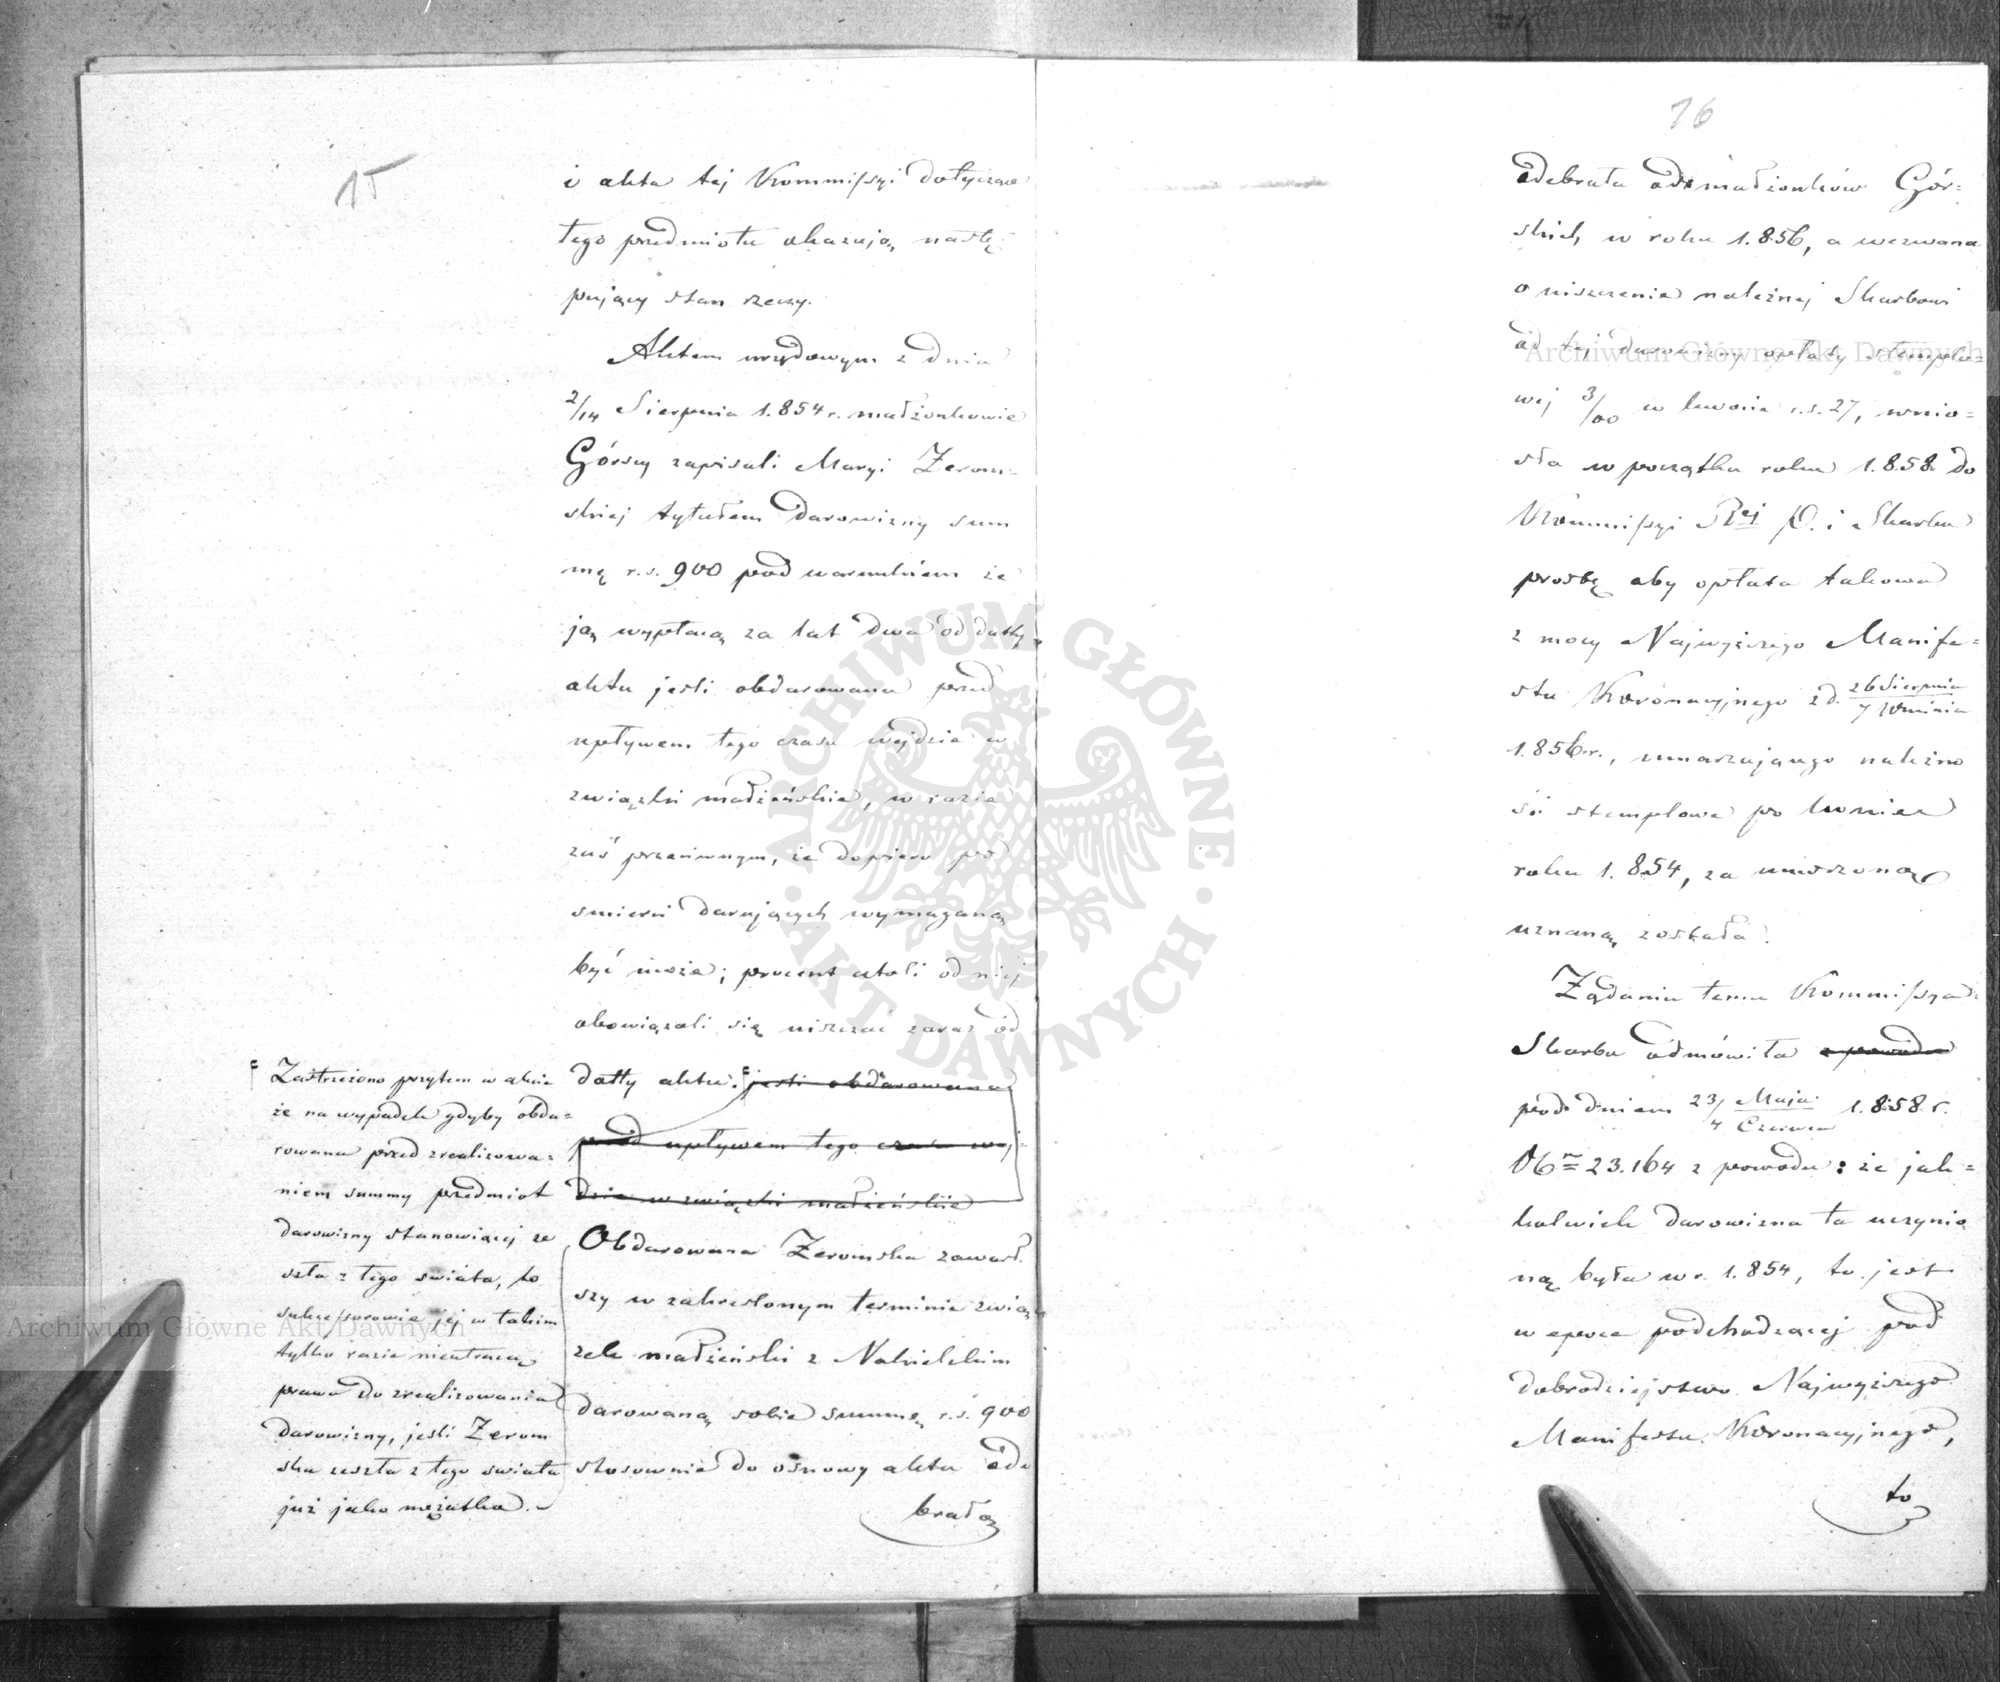 15
i akta tej Kommissyi dotyczące
tego przedmiotu okazują nastę-
pujący stan rzeczy.
Aktem urzędowym z dnia
2/14 Sierpnia 1.854 r. małżonkowie
Górscy zapisali Maryi Żerom-
skiej tytułem darowizny sum
mę r.s. 900 pod warunkiem że
ją wypłacą za lat dwa od datty
aktu jeśli obdarowana przed
upływem tego czasu wejdzie w
związki małżeńskie, w razie
zaś przeciwnym, że dopiero po
śmierci darujących wymaganą
być może; procent atoli od niej
obowiązali się uiszczać zaraz od
datty aktu. jeśli obdarowana
przed upływem tego czasu wej-
dzie w związki małżeńskie
Obdarowana Żeromska zawarł
szy w zakreślonym terminie zwią
zek małżeński z
darowaną sobie summę r.s. 900
stosownie do osnowy aktu ode
brała
Zastrzeżono przytem w akcie
że na wypadek gdyby obda-
rowana przed zrealizowa-
niem summy przedmiot
darowizny stanowiącej ze
szła z tego świata, to
sukcessorowie jej w takim
tylko razie nieutracą
prawa do zrealizowania
darowizny, jeśli Żerom
ska zeszła z tego świata
już jako mężatka.
16
odebrała od małżonków Gór-
skich w roku 1.856, a wezwana
o uiszczenie należnej Skarbowi
od tej darowizny opłaty stemplo-
wej 3/00 w kwocie r.s. 27, wnio-
sła w początku roku 1.858 do
Kommissyi Rej P. i Skarbu
prośbę aby opłata takowa
z mocy Najwyższego Manife-
stu Koronacyjnego z d. 26 Sierpnia
7 Września
1.856 r., umarzającego należno
ści stemplowe po koniec
roku 1.854, za umorzoną
uznaną została.
Żądaniu temu Kommissya
Skarbu odmówiła z powodu
pod dniem 23/4 Maja 1.858 r.
Czerwca
N 23.164 z powodu: że jak-
kolwiek darowizna ta uczynio
ną była w r. 1.854, to jest
w epoce podchodzącej pod
dobrodziejstwo Najwyższego
Manifestu Koronacyjnego,
to
ARCHIWUM GŁÓWNE AKT DAWNYCH
Archiwum Główne Akt Dawnych
Archiwum Główne Akt Dawnych